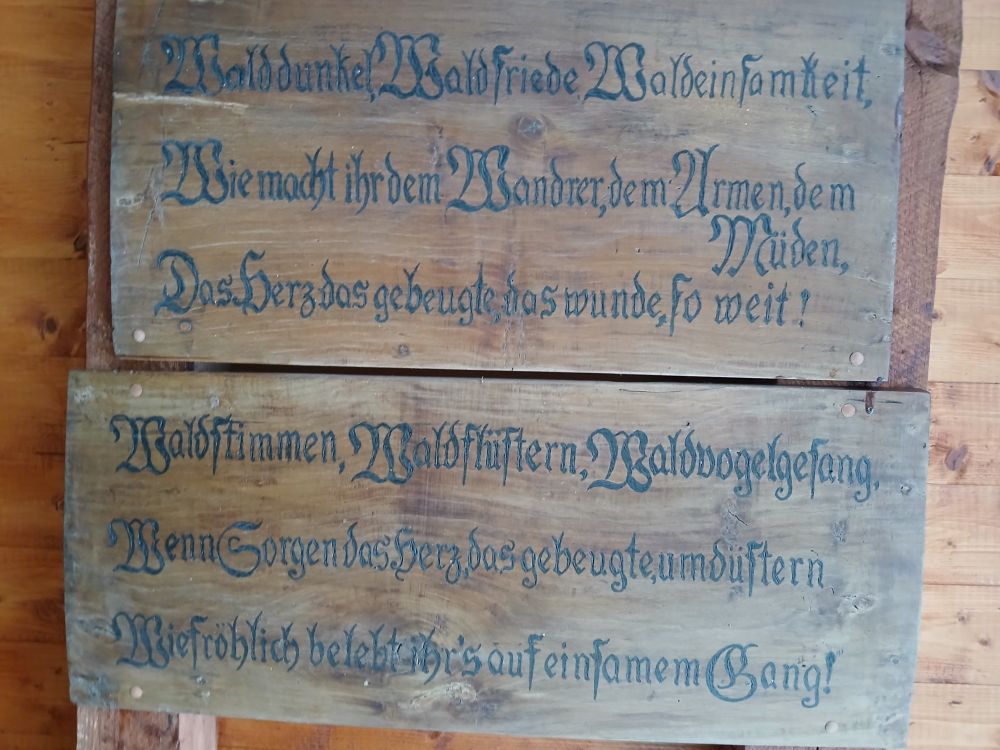 Walddunkel, Waldfriede, Waldeinsamkeit,
Wie macht ihr dem Wandrer, dem Armen, dem
Müden,
Das Herz, das gebeugte, das wunde, so weit!
Waldstimmen, Waldflüstern, Waldvogelgesang,
Wenn Sorgen das Herz, das gebeugte, umdüstern
Wie fröhlich belebt ihr's auf einsamem Gang!